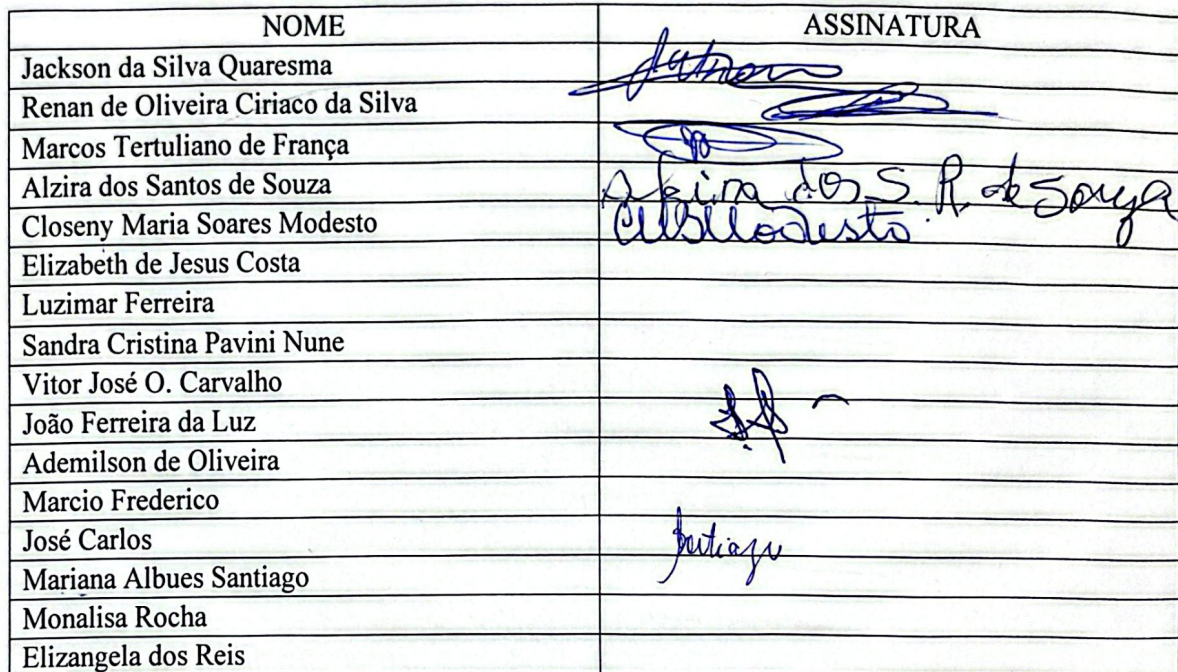 NOME ASSINATURA
Jackson da Silva Quaresma
Renan de Oliveira Ciriaco da Silva
Marcos Tertuliano de França
Alzira dos Santos de Souza Alzira dos S. R. de Souza
Closeny Maria Soares Modesto CMSModesto
Elizabeth de Jesus Costa
Luzimar Ferreira
Sandra Cristina Pavini Nune
Vitor José O. Carvalho
João Ferreira da Luz
Ademilson de Oliveira
Marcio Frederico
José Carlos Santiago
Mariana Albues Santiago
Monalisa Rocha
Elizangela dos Reis